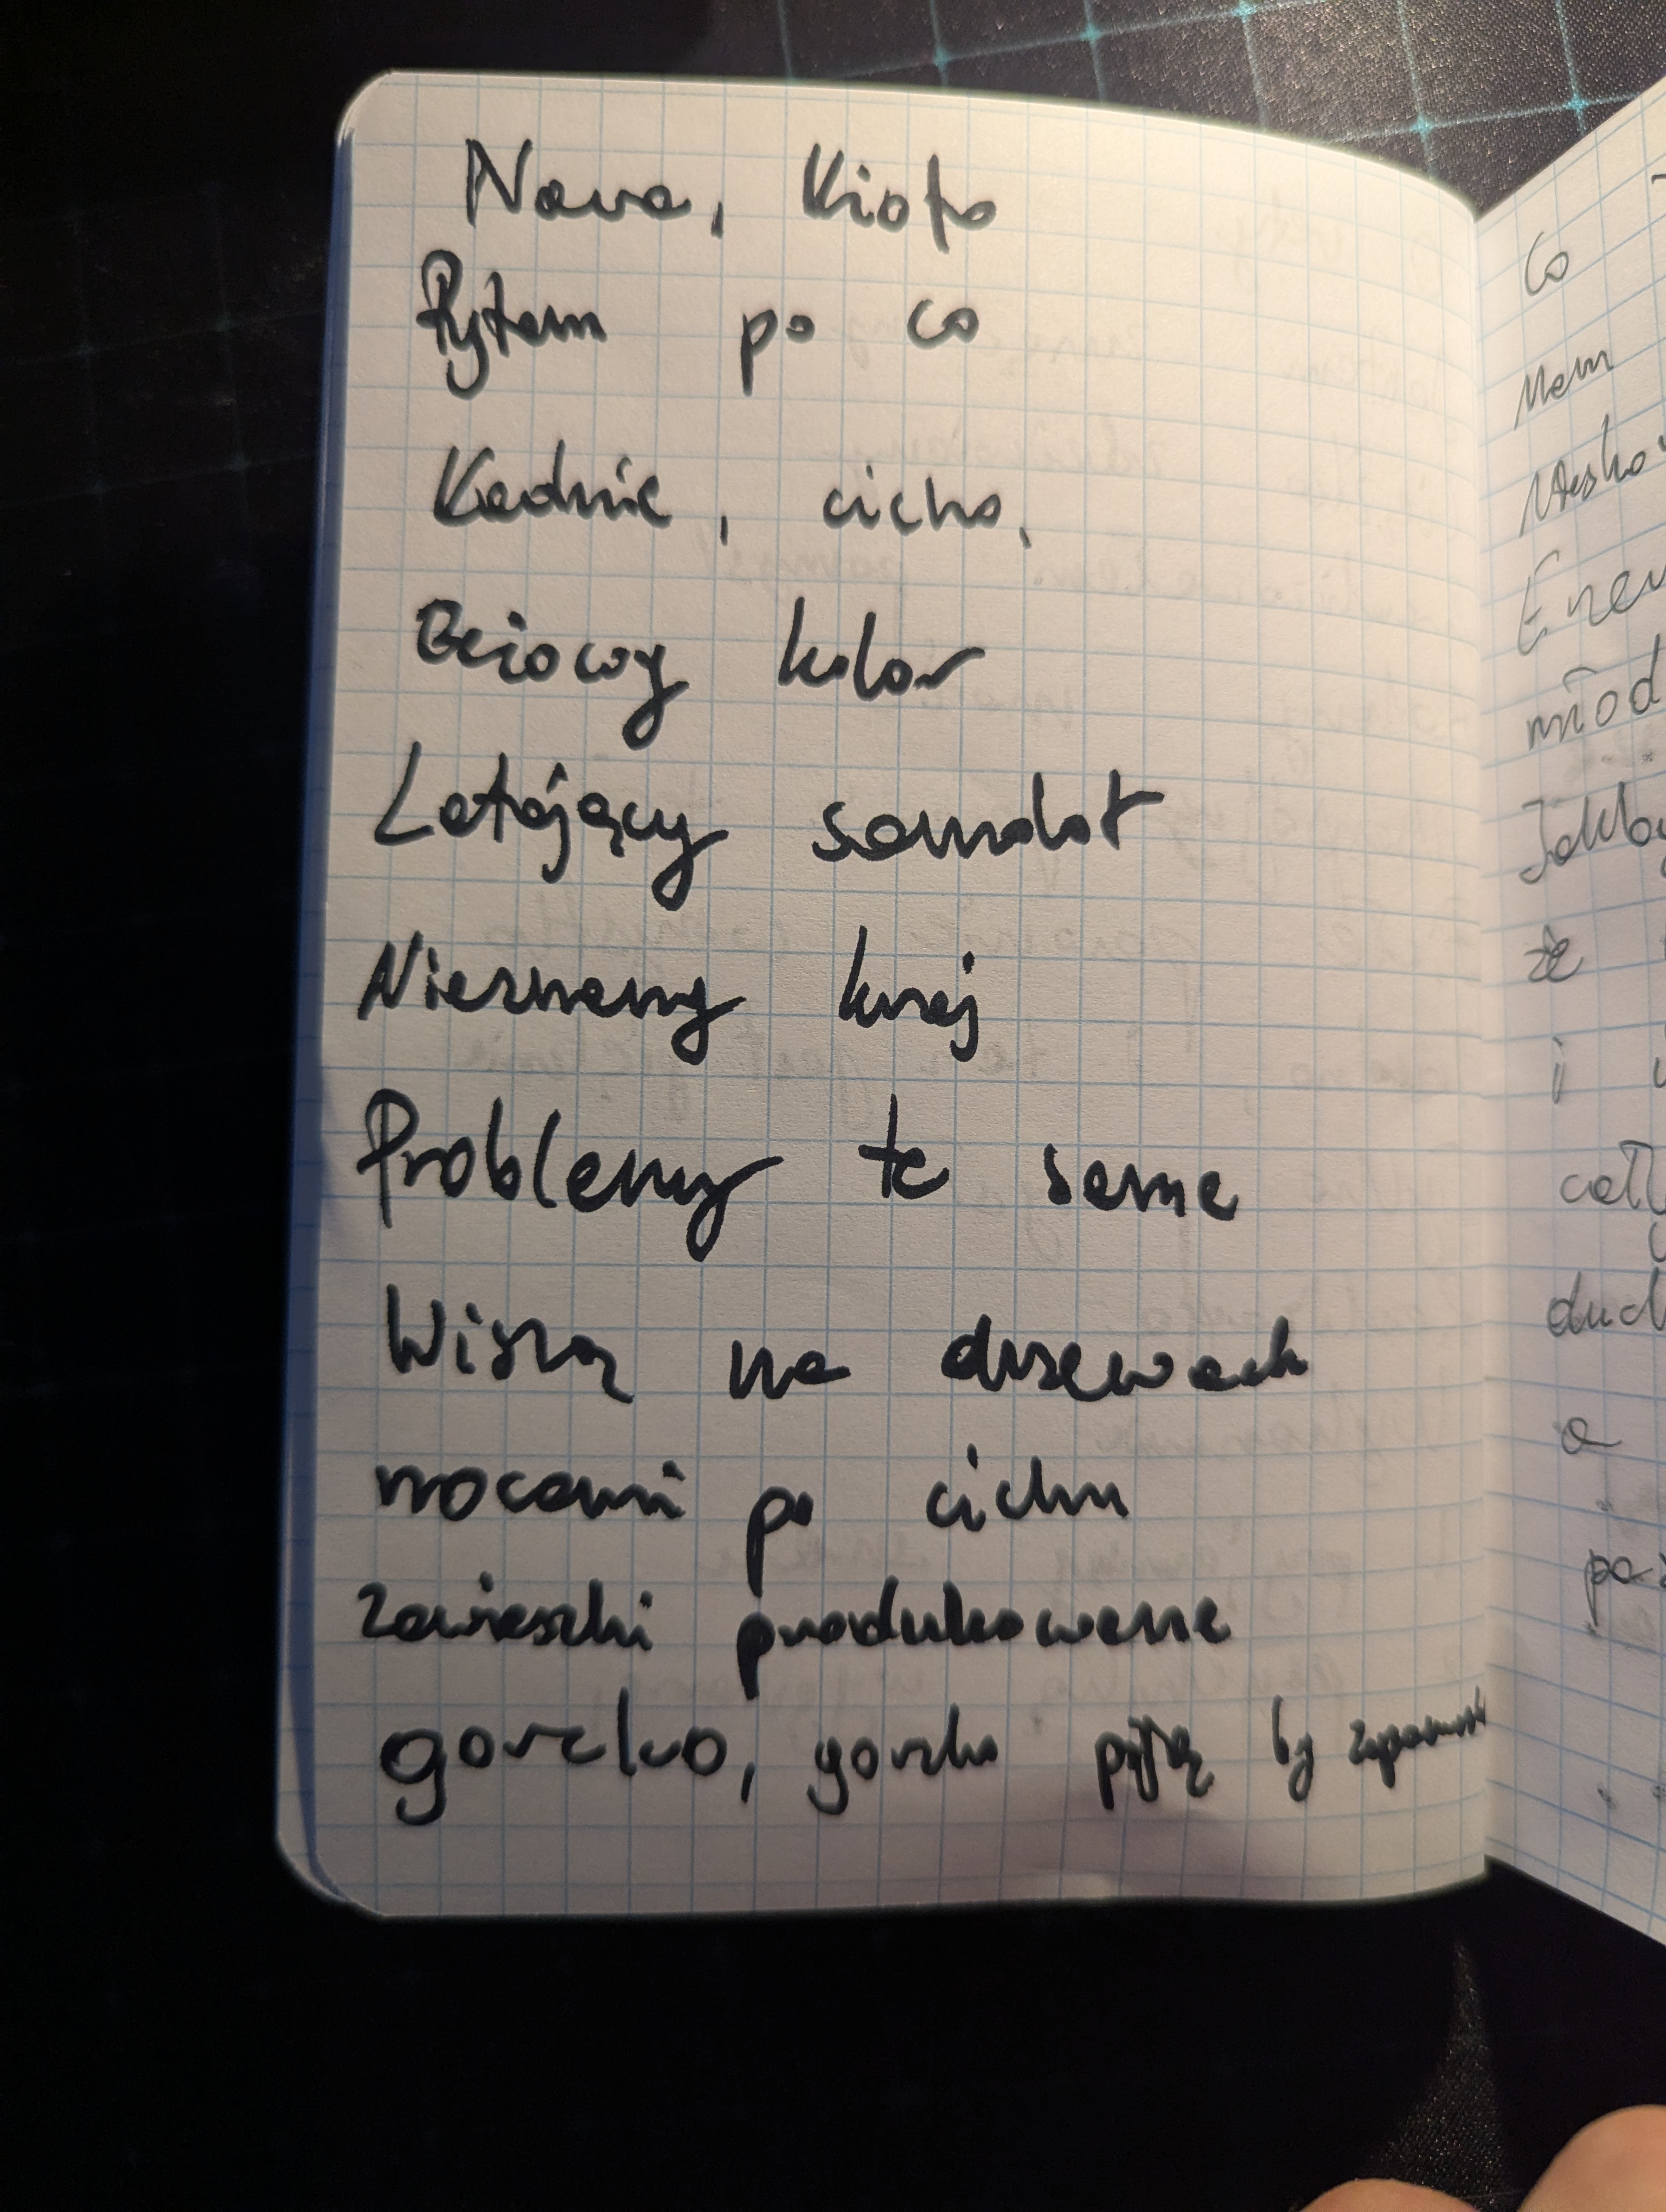 Nara, Kioto
Pytam po co
Ładnie, cicho,
Beżowy kolor
Latający samolot
Nieznany kraj
Problemy te same
Wiszą na drzewach
nocami po cichu
Zawieszki produkowane
gorzko, gorzko piją by zapomnieć
Co
Mam
że
i
a